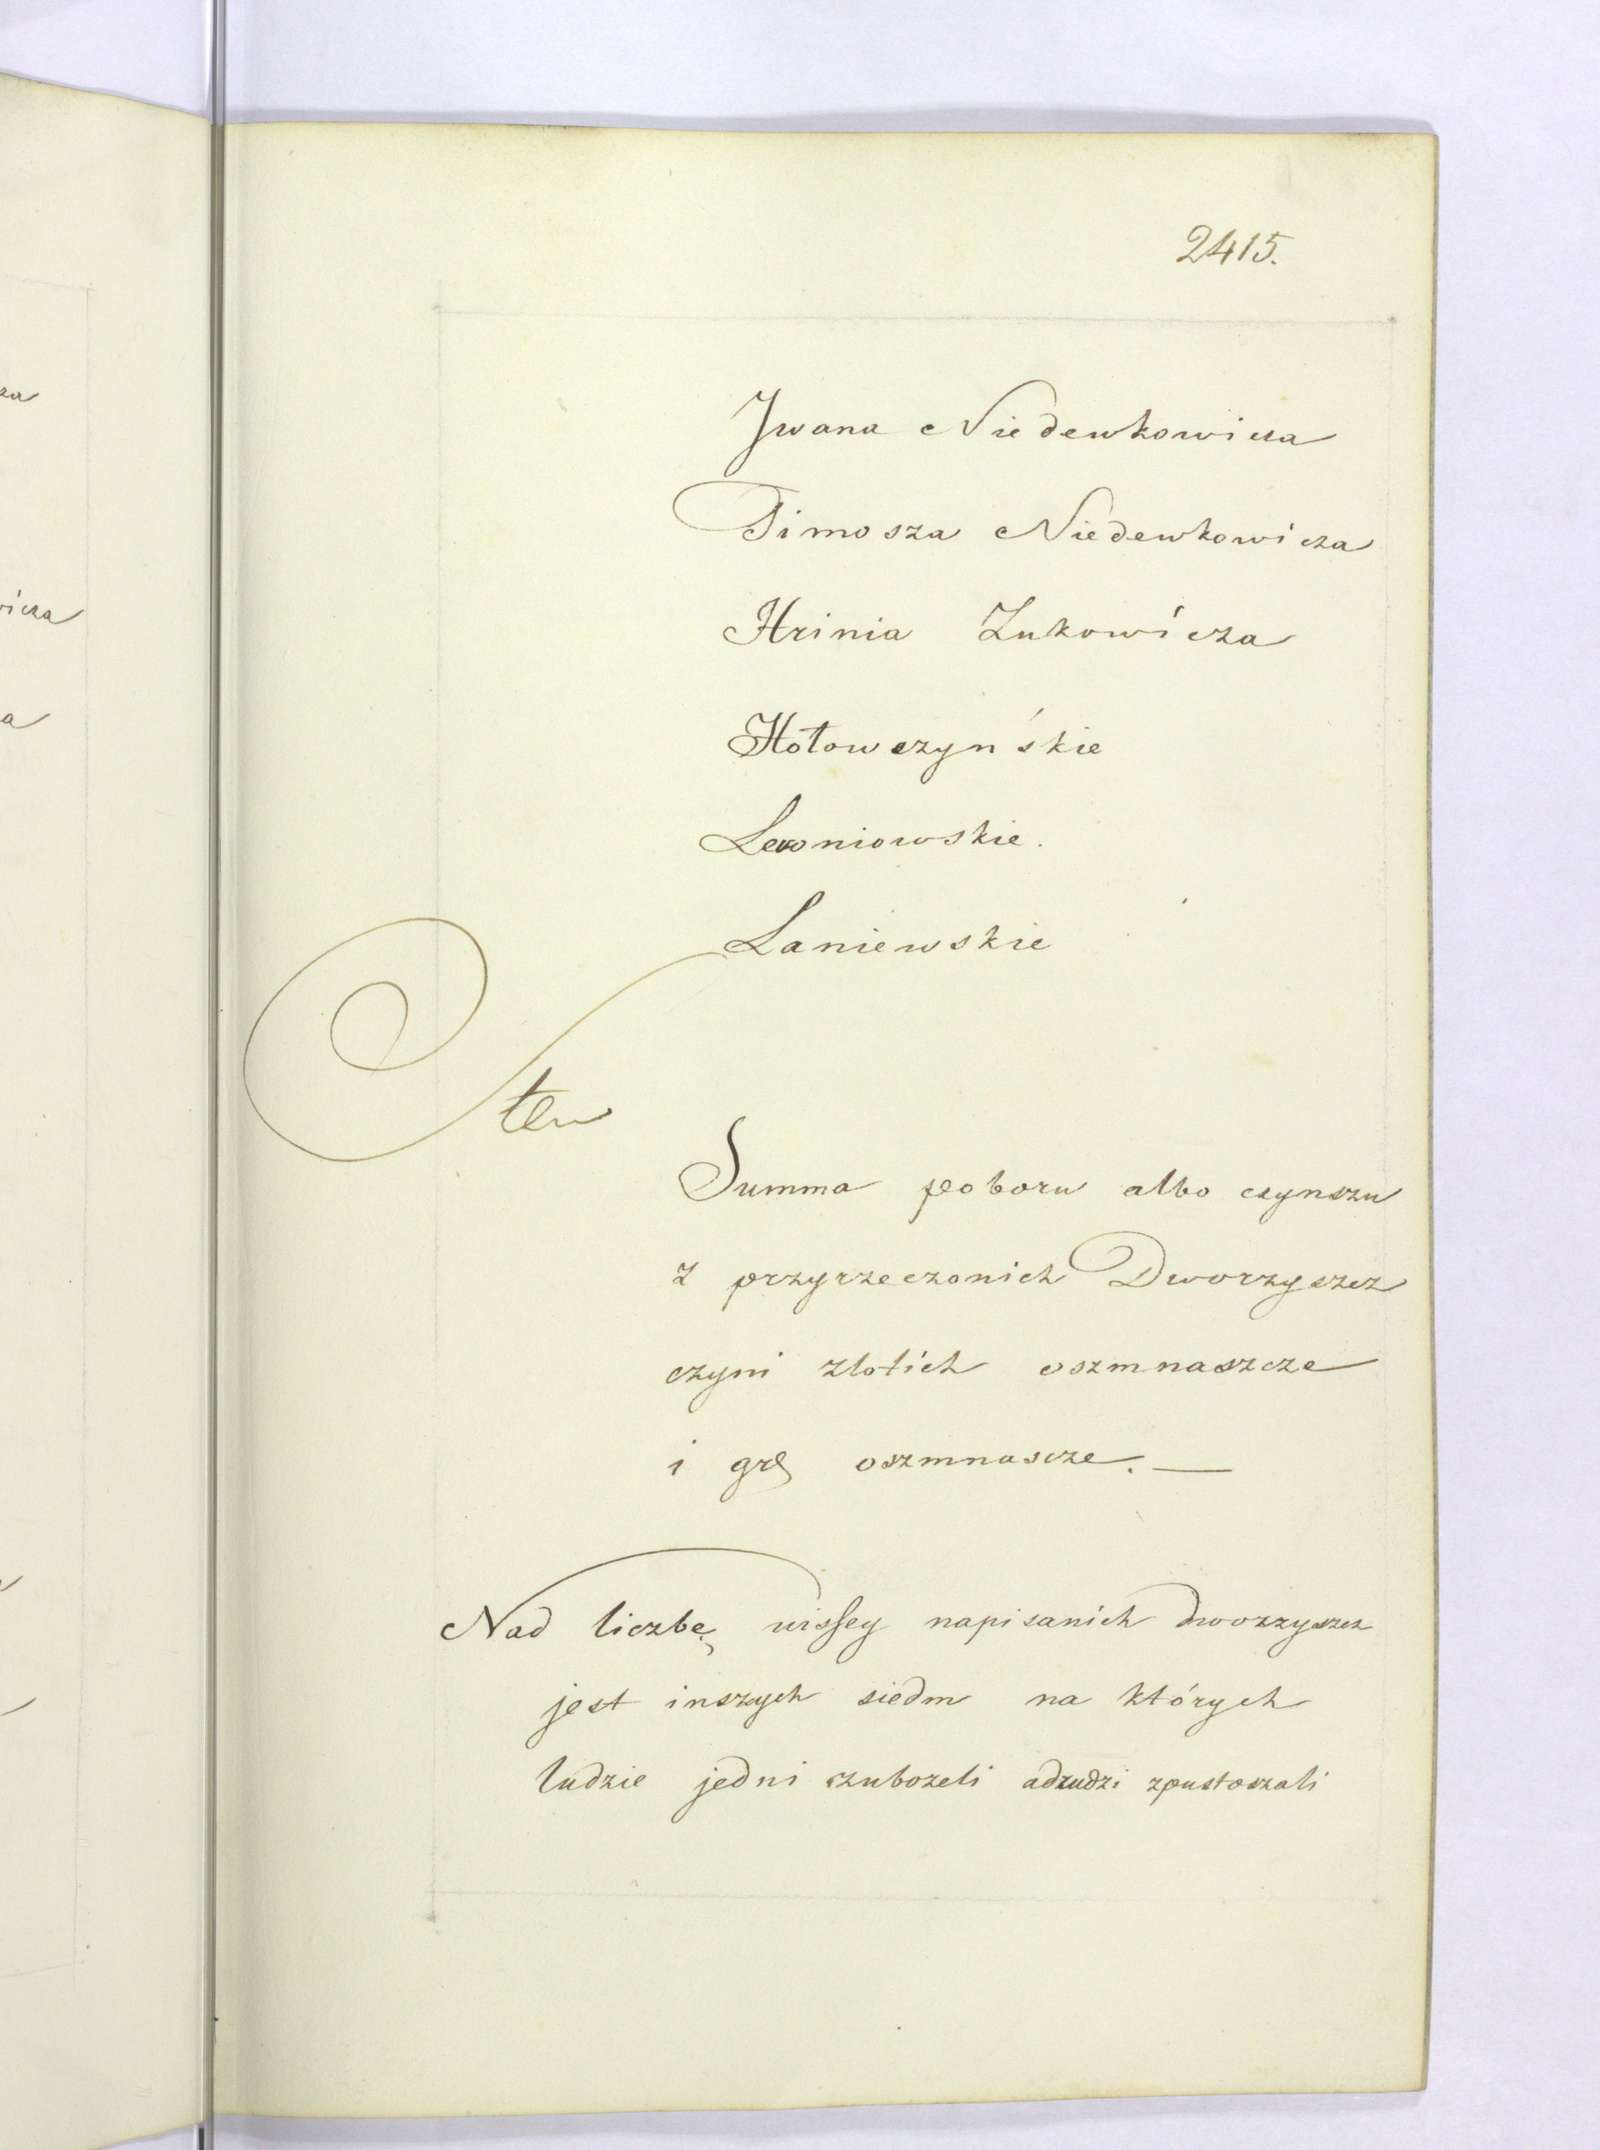 2415.
Jwana Niedewkowicza
Timosza Niedewkowicza
Hrinia Zukowicza
Hołowczyńskie
Lewoniowskie.
Laniewskie
Summa poboru albo czynszu
z przyrzeczonich Dworzyszcz
czyni zlotich oszmnaszcze
i gr oszmnascze. —
Nad liczbę wissey napisanich dworzyszcz
jest inszych siedm na których
ludzie jedni zubozeli adrudzi zpustoszali
icza